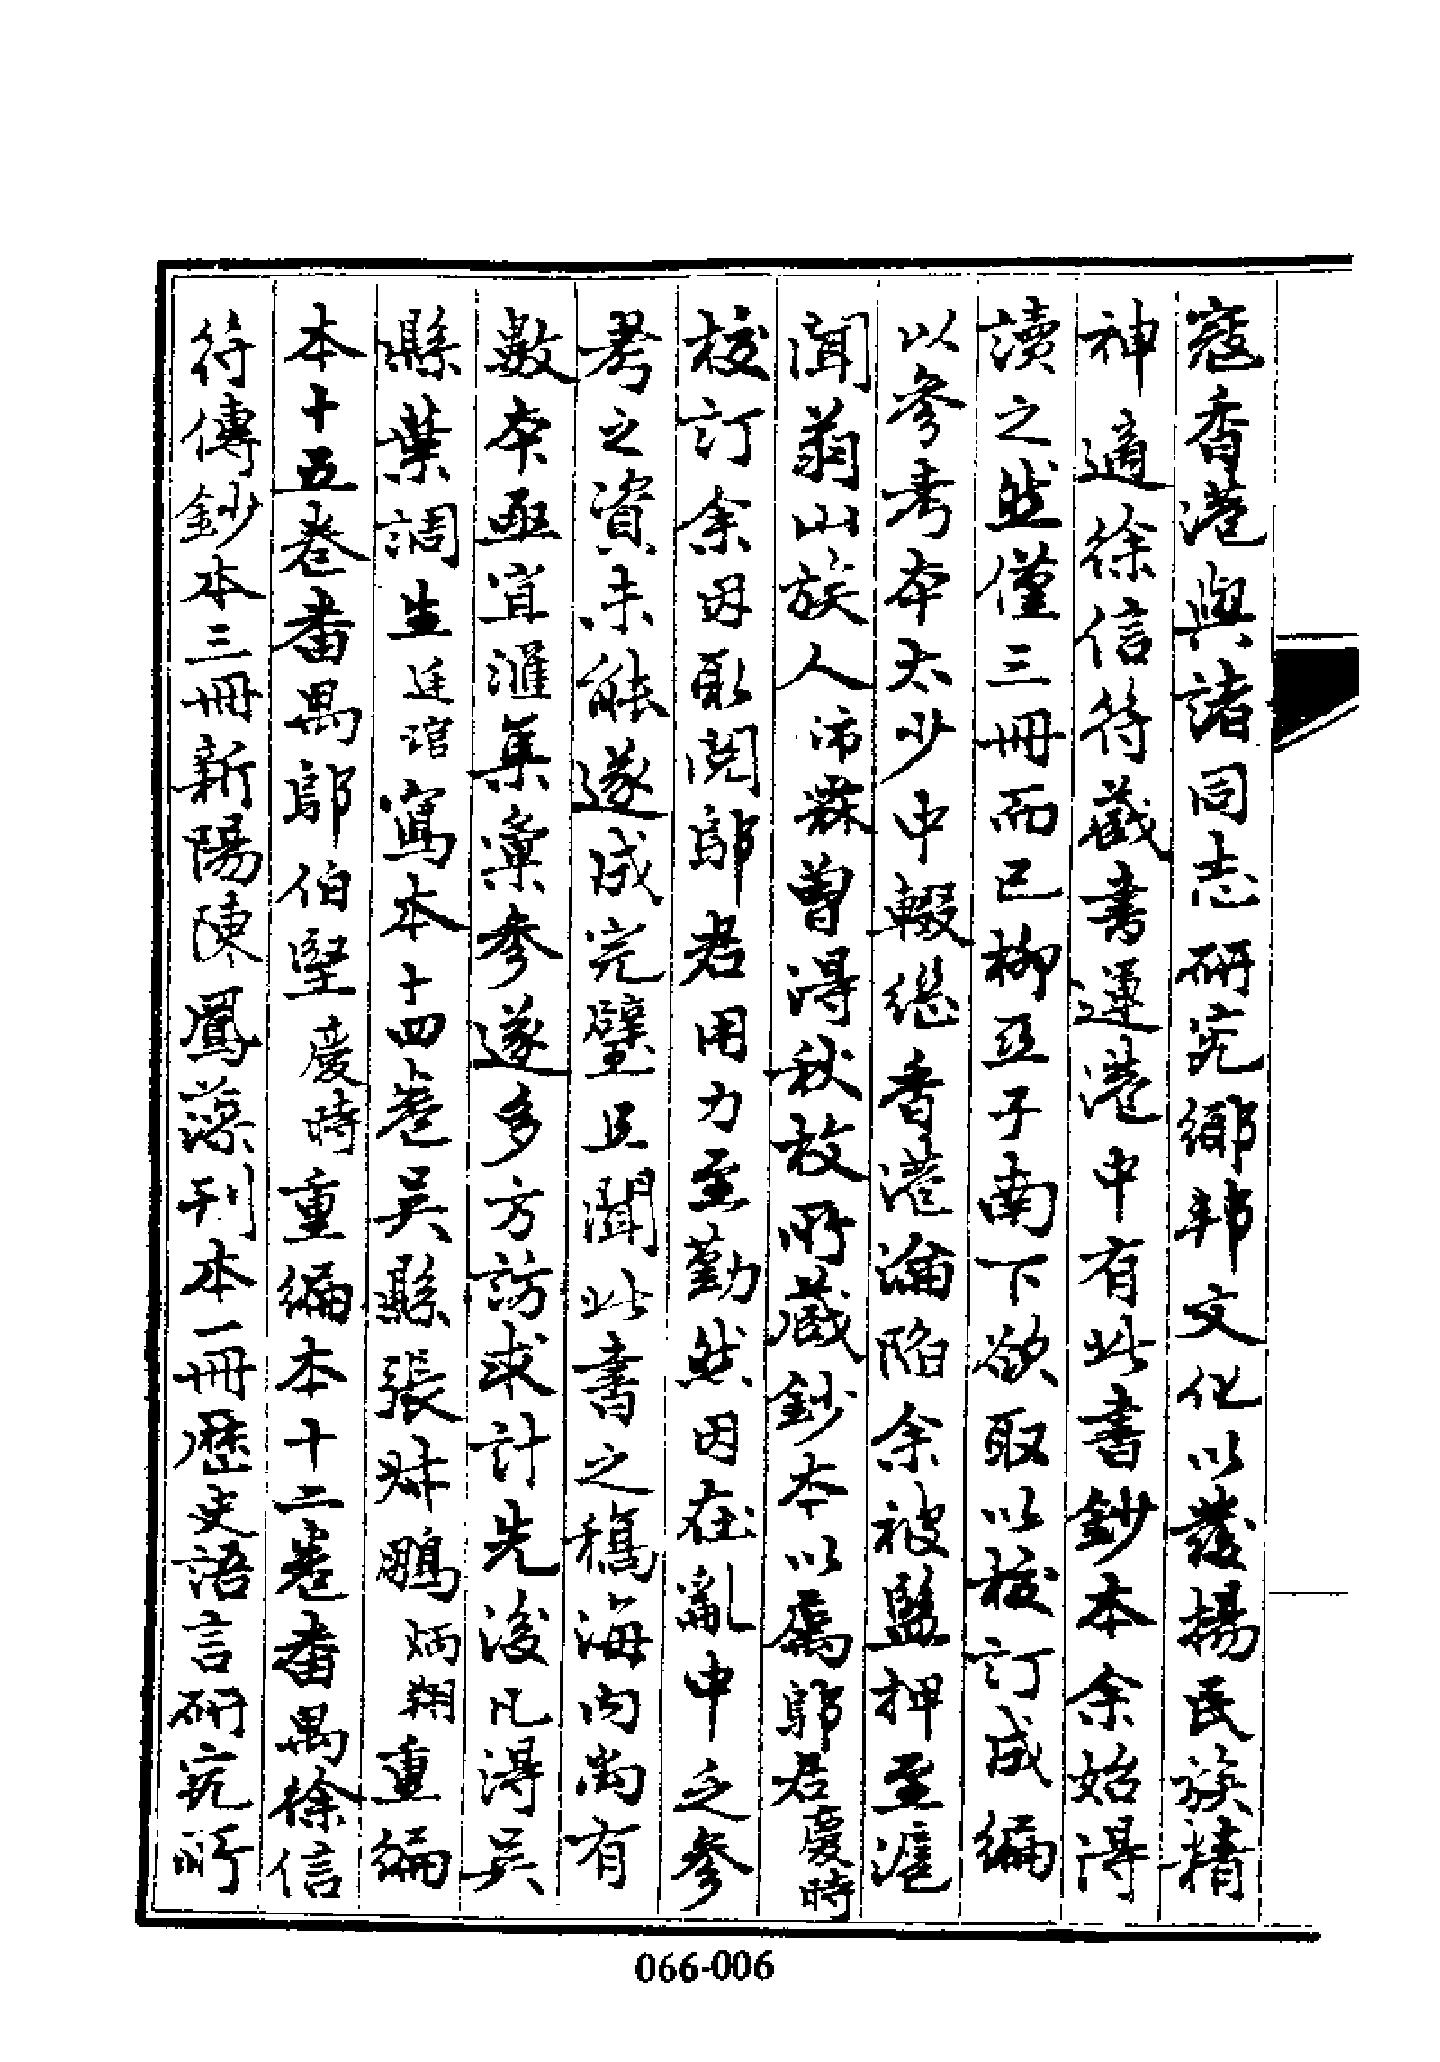 寇香港與諸同志研究鄉邦文化以發揚民族精
神適徐信符藏書運港中有此書鈔本余始得
讀之然僅三冊而已柳亞子南下欲取以校訂成編
以參考本太少中輟繼香港淪陷余被監押至滬
聞翁山族人沛霖曾得秋枚所藏鈔本以屬鄔君慶時
校訂余因取閱鄔君用力至勤然因在亂中之參
考之資未能遂成完璧且聞此書之稿海內尚有
數本亟宜滙集彙參遂多方訪求計先後凡得吳
縣葉調生廷琯寫本十四卷吳縣張㶷鵬炳翔重編
本十五卷番禺鄔伯堅慶時重編本十二卷番禺徐信
符傳鈔本三冊新陽陳鳳藻刊本一冊歷史語言研究所
066-006